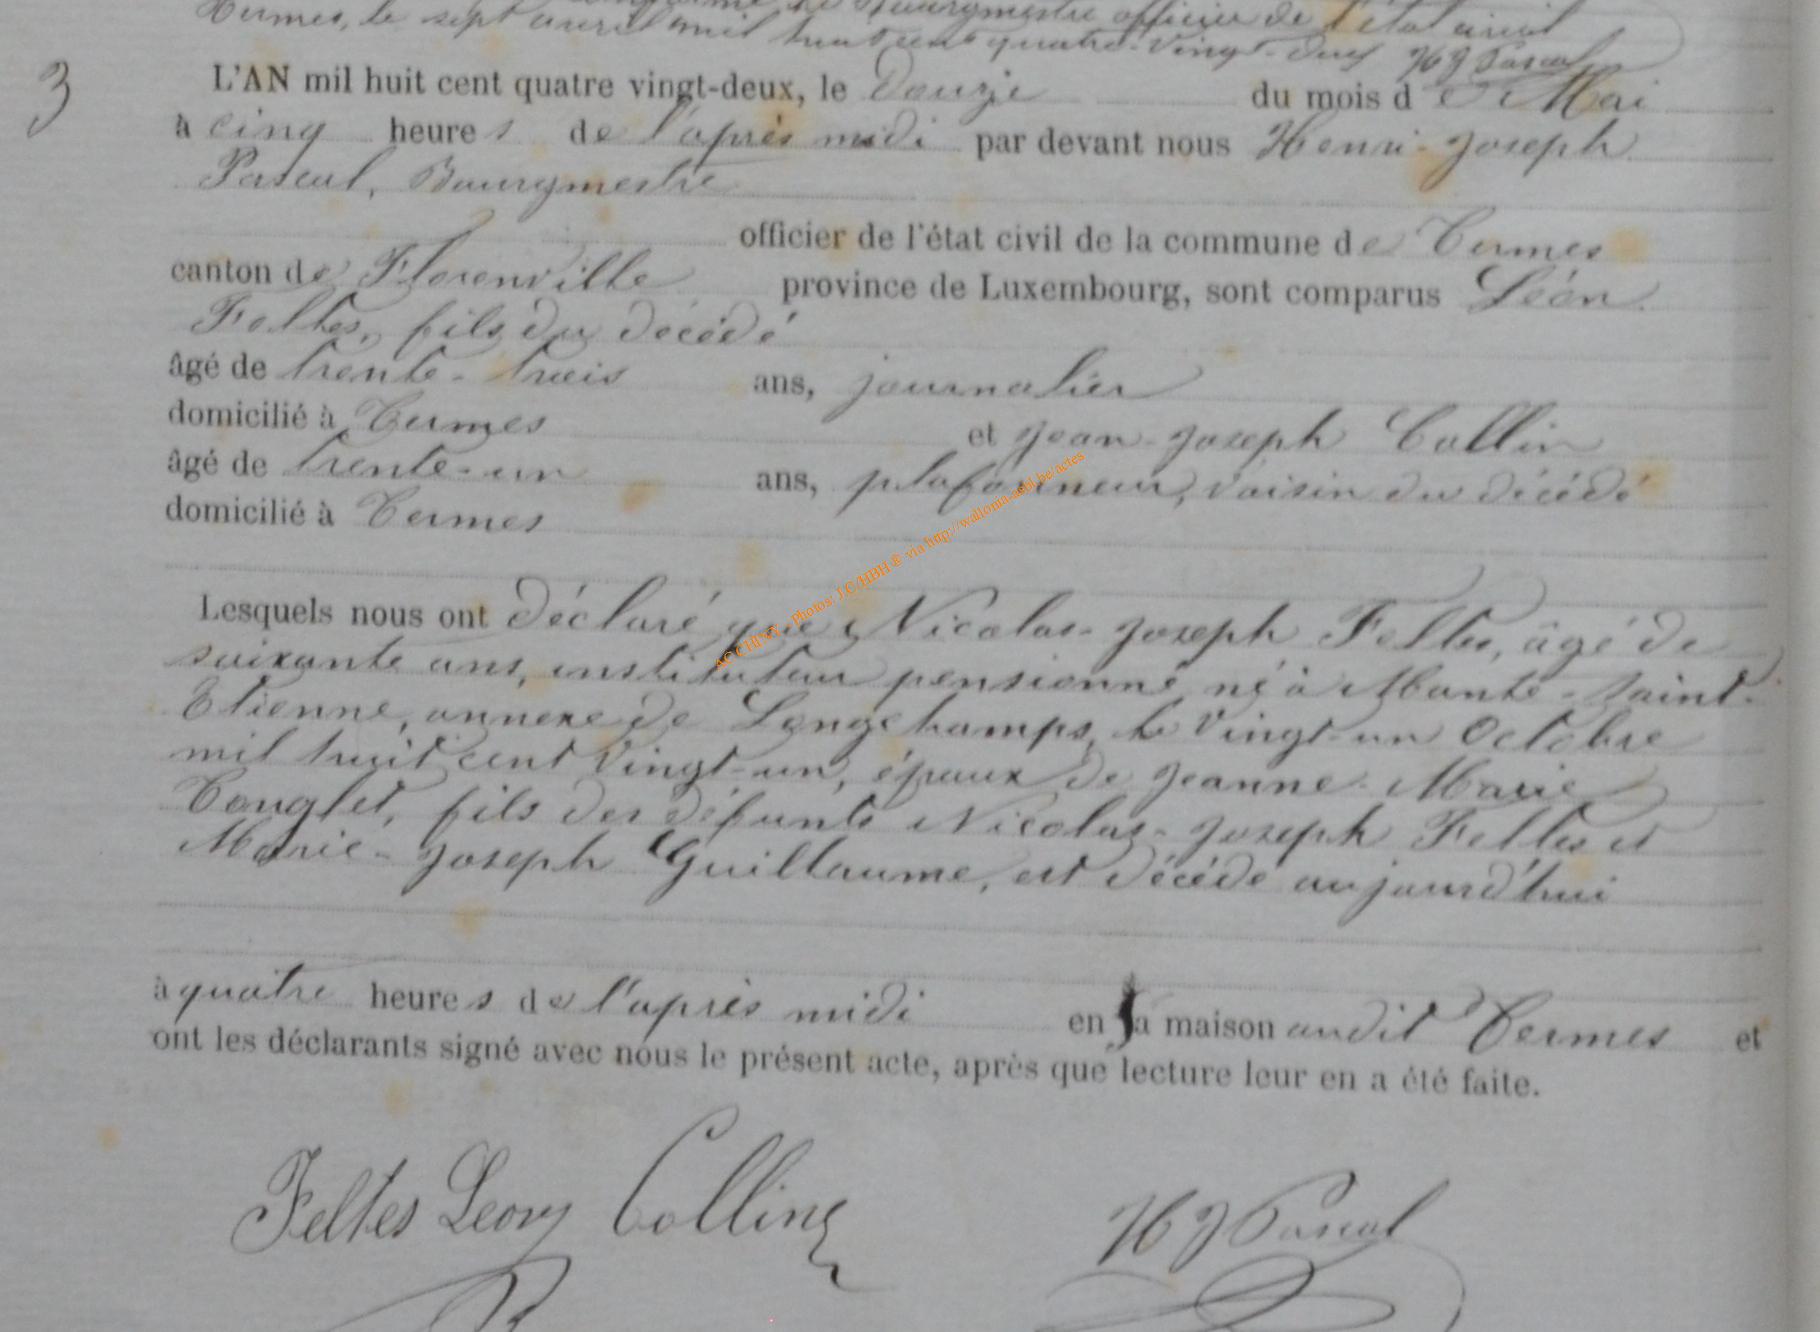 Termes, le sept avril mil huit cent quatre-vingt-deux H J Pascal
3
L'AN mil huit cent quatre vingt-deux, le douze du mois de Mai
à cinq heures de l'après midi par devant nous Henri-Joseph
Pascal, Bourgmestre
officier de l'état civil de la commune de Termes
canton de Florenville province de Luxembourg, sont comparus Léon
Feltes, fils du décédé
âgé de trente-trois ans, journalier
domicilié à Termes et Jean-Joseph Collin
âgé de trente-un ans, plafonneur, voisin du décédé
domicilié à Termes
Lesquels nous ont déclaré que Nicolas-Joseph Feltes, âgé de
soixante ans, instituteur pensionné né à Monte-Saint-
Etienne, annexe de Longchamps, le vingt-un Octobre
mil huit cent vingt-un, époux de Jeanne-Marie
Conglet, fils des défunts Nicolas-Joseph Feltes et
Marie-Joseph Guillaume, est décédé aujourd'hui
à quatre heures de l'après midi en sa maison audit Termes et
ont les déclarants signé avec nous le présent acte, après que lecture leur en a été faite.
Feltes Leon Collin H J Pascal
AC CHINY - Photos: J.C/HBH ® via http://wallonia-asbl.be/actes